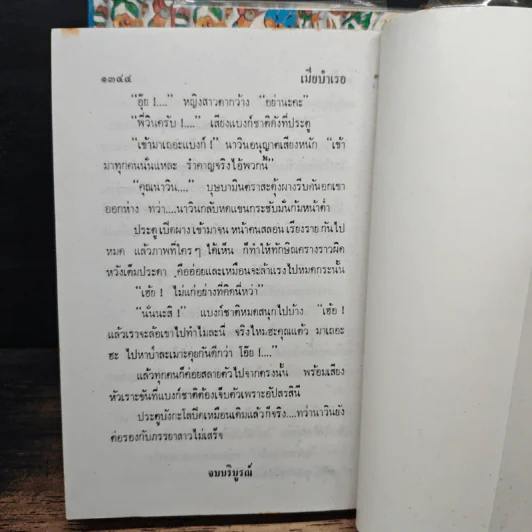 ๑๓๔๔ เมียบำเรอ
“อุ๊ย !....” หญิงสาวตากว้าง “อย่านะคะ”
“พี่วินครับ !....” เสียงแบงก์ชาติดังที่ประตู
“เข้ามาเถอะแบงก์ !” นาวินอนุญาตเสียงหนัก “เข้า
มาทุกคนนั่นแหละ รำคาญจริงไอ้พวกนี้”
“คุณนาวิน....” บุษบามินตราสะดุ้งผางรีบดันอกเขา
ออกห่าง ทว่า....นาวินกลับหดแขนกระชับมั่นก้มหน้าต่ำ
ประตูเปิดผางเข้ามาจน หน้าคนสลอนเรียงรายกันไป
หมด แล้วภาพที่ใครๆ ได้เห็น ก็ทำให้ทักษิณครางราวผิด
หวังเต็มประดา คืออ่อยและเหมือนจะล้าแรงไปหมดกระนั้น
“เฮ้ย ! ไม่แก่อย่างที่คิดนี่หว่า”
“นั่นนะสิ !” แบงก์ชาติหมดสนุกไปบ้าง “เฮ้อ !
แล้วเราจะล้อเขาไปทำไมละนี่ จริงไหมฮะคุณแต้ว มาเถอะ
ฮะ ไปหาบ๊าละเมาะคุยกันดีกว่า โอ๊ย !....”
แล้วทุกคนก็ค่อยสลายตัวไปจากตรงนั้น พร้อมเสียง
หัวเราะขันที่แบงก์ชาติต้องเจ็บตัวเพราะอัปสรสินี
ประตูบังกะโลปิดเหมือนเดิมแล้วก็จริง....ทว่านาวินยัง
ต่อรองกับภรรยาสาวไม่เสร็จ
จบบริบูรณ์